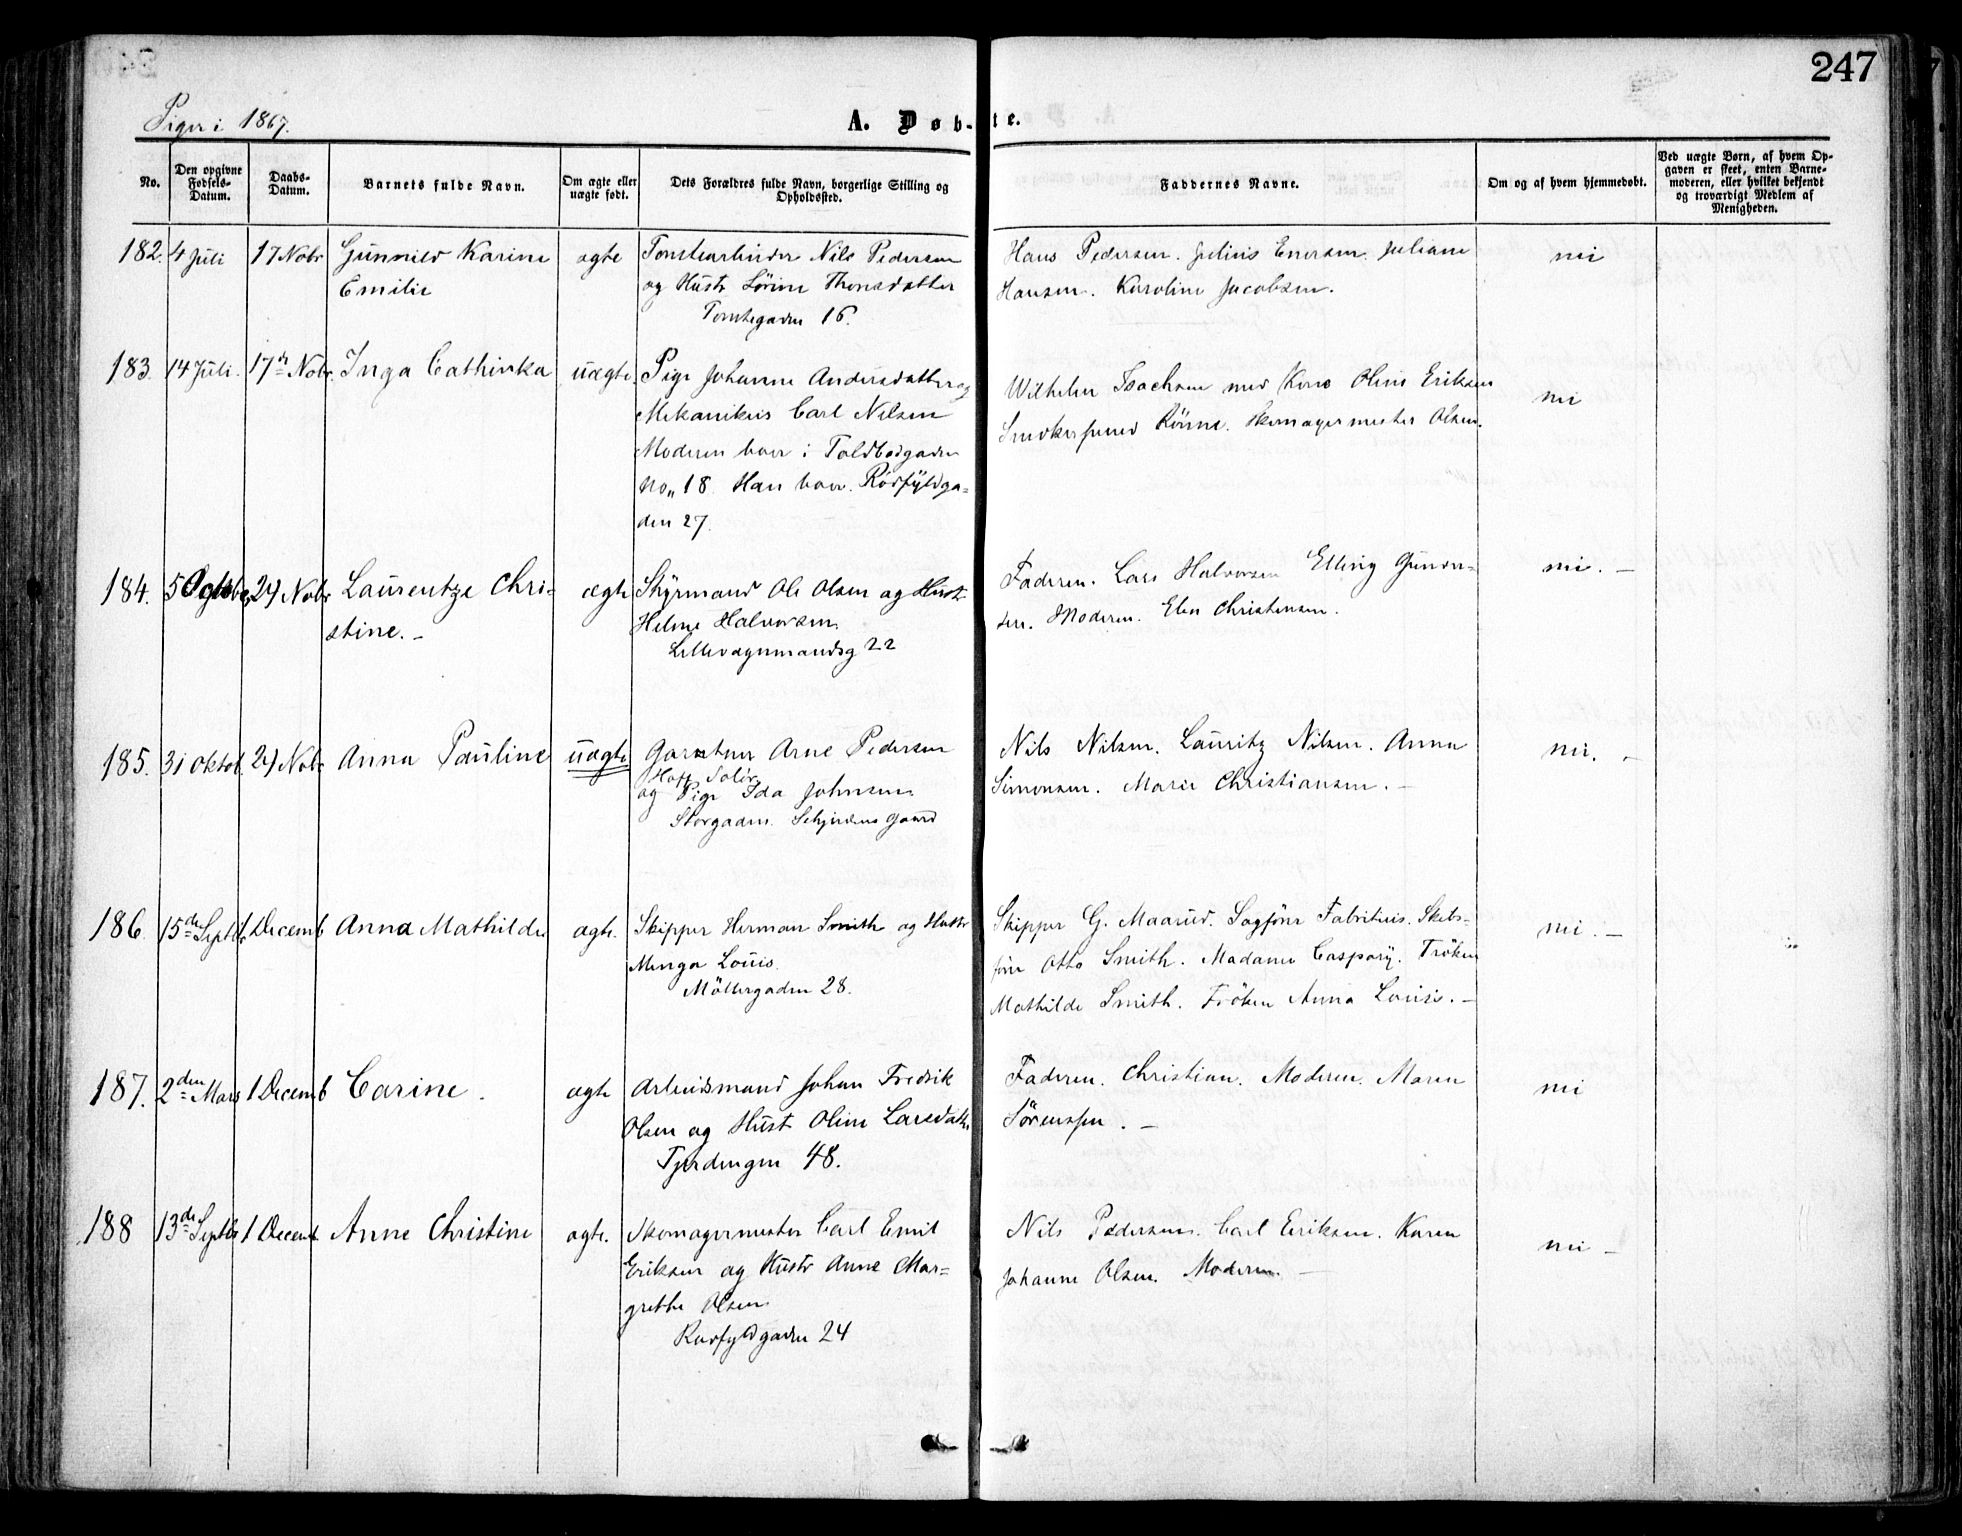 247
Piger i 1867.
A. Døb-te.
No.
Den opgivne Fødsels-Datum.
Daabs-Datum.
Barnets fulde Navn.
Om ægte eller uægte født.
Dets Forældres fulde Navn, borgerlige Stilling og Opholdssted.
Faddernes Navne.
Om og af hvem hjemmedøbt.
Ved uægte Børn, af hvem Op-
gaven er skeet, enten Barne-
moderen, eller hvilket bekjendt
og troværdigt Medlem af
Menigheden.
182. 4 Juli 17 Nobr Gunnild Karine ægte Nils Pedersen Hans Pedersen. Julius Enersen. Juliane nei
Emilie og Hustr Lorine Thorsdatter Hansen. Karoline Jacobsen.
Tomtegaden 16.
183. 14 Juli. 17de Nobr. Inga Cathinka uægte Pige Johanne Andersdatter og Wilhelm Isachsen med Kone Oline Eriksen nei
Mekanikus Carl Nilsen Rönne. Skomagermester Olsen.
Moderen boer i Toldbodgaden
No„ 18. Han boer. Rödfyldga-
den 27.
184. 5 Octobr 24 Nobr Laurentze Chri- ægte Styrmand Ole Olsen og Hustr Faderen. Lars Halvorsen Elling Gunder- nei. –
stine. – Helene Halvorsen. sen. Moderen. Elen Christensen.
Lillevognmandsg 22
185. 31 Oktob. 24 Nobr Anna Pauline uægte Gartner Arne Pedersen Nils Nilsen. Lauritz Nilsen. Anna nei. –
Hoff Solör
og Pige Ida Johnsen Simonsen. Marie Christiansen. –
Storgaden. Gaard
186. 15de Septbr 1 Decemb Anna Mathilde ægte. Skipper Herman Smith og Hustr Skipper G. Maarud. Sagförer Fabritius. Skibs- nei. –
Minga Louis. förer Otto Smith. Madame Caspary. Fröken
Möllergaden 28. Mathilde Smith. Fröken Anna Louise. –
187. 2den Mars 1 Decemb Carine. ægte Arbeidsmand Johan Fredrik Faderen. Christian. Moderen. Maren nei
Olsen og Hust Oline Larsdatr. Sörenssen. –
Fjerdingen 48.
188 13de Septbr 1 Decemb. Anne Christine ægte. Skomagermester Carl Emil Nils Pedersen. Carl Eriksen. Karen nei –
Eriksen og Hustr Anne Mar- Johanne Olsen. Moderen. –
grethe Olsen
Rødfyldgaden 24